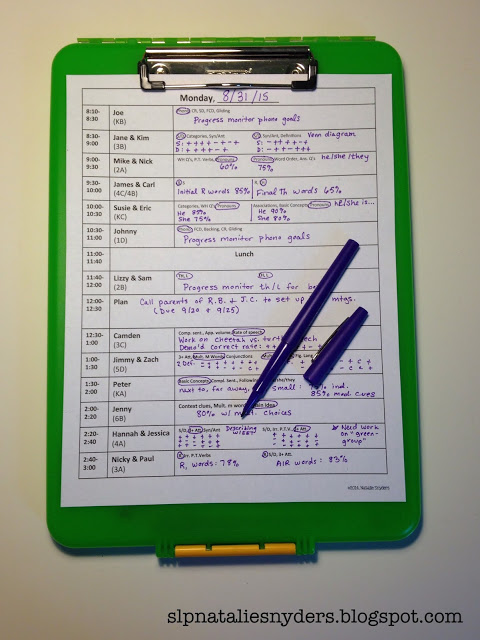 Monday, 8/31/15
8:10-
8:30
Joe
(KB)
Phono, CR, SD, FCD, Gliding
Progress monitor phono goals
8:30-
9:00
Jane & Kim
(3B)
Categories, Syn/Ant
S/D, Syn/Ant, Definitions Venn diagram
S: + - + + - +
S: - + + + - +
D: + + + - +
D: - + - + +
9:00-
9:30
Mike & Nick
(2A)
WH Q's, P.T. Verbs, Pronouns
60%
Pronouns Word Order, Ans. Q's he/she/they
75%
9:30-
10:00
James & Carl
(4C/4B)
Initial R words 85%
Final Th words 65%
10:00-
10:30
Susie & Eric
(KC)
Categories, WH Q's, Pronouns
He 85%
She 75%
Associations, Basic Concepts, Pronouns he/she is...
He 90%
She 80%
10:30-
11:00
Johnny
(1D)
Phono, FCD, Backing, CR, Gliding
Progress monitor phono goals
11:00-
11:40
Lunch
11:40-
12:00
Lizzy & Sam
(2B)
TH, L
Progress monitor th/L for
12:00-
12:30
Plan
Call parents of R.B. & J.C. to set up mtgs.
(Due 9/20 & 9/25)
12:30-
1:00
Camden
(3C)
Comp. sent., App. volume, Rate of speech
Work on cheetah vs. turtle speech
Demo'd correct rate:
1:00-
1:30
Jimmy & Zach
(5D)
3+ Att., Mult. M Words, Conjunctions
Fig. Lang
2 Def.
1:30-
2:00
Peter
(KA)
Basic Concepts, Compl. Sent., Following
next to, far away, small: ind.
85% mod. cues
2:00-
2:20
Jenny
(6B)
Context clues, Mult. m words, Main idea
80% w/ choices
2:20-
2:40
Hannah & Jessica
(4A)
S/D, 3+ Att., Syn/Ant
Describing
S/D, Irr. P.T.V., 3+ Att.
Need work
on "green-
group"
2:40-
3:00
Nicky & Paul
(3A)
R, Irr. P.T.Verbs
R, words: 78%
R, S/D, 3+ Att.
AIR words: 83%
©2014, Natalie Snyders
slpnataliesnyders.blogspot.com